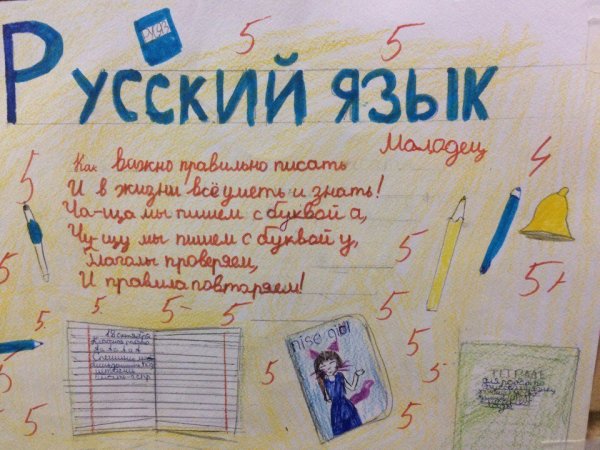 РУСЯЗ
5
5
РУССКИЙ ЯЗЫК
Молодец
5
4
Как важно правильно писать
И в жизни всё уметь и знать!
Ча-ща мы пишем с буквой а,
Чу-щу мы пишем с буквой у,
Глаголы проверяем,
И правила повтаряем!
5
5
5+
5.
5-
5
5.
nise girl
5
5
5
5-
5
5
ТЕТРАДЬ